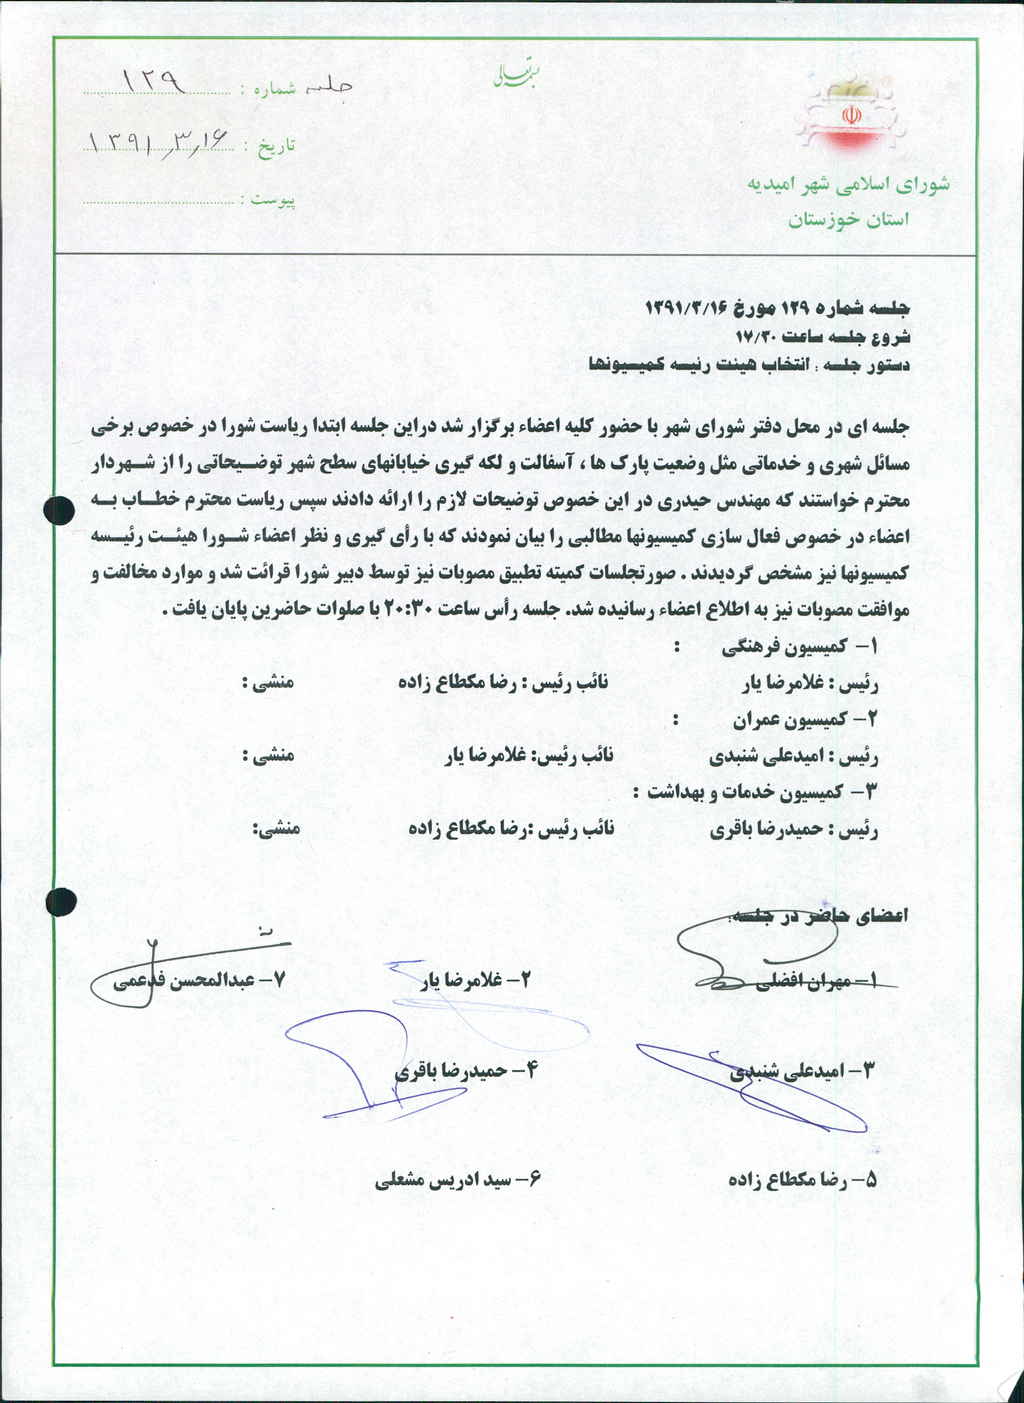 بسمه تعالی
جلسه شماره : ۱۲۹
تاریخ : ۱۳۹۱٫۳٫۱۶
پیوست :
شورای اسلامی شهر امیدیه
استان خوزستان
جلسه شماره ۱۲۹ مورخ ۱۳۹۱/۳/۱۶
شروع جلسه ساعت ۱۷/۳۰
دستور جلسه : انتخاب هیئت رئیسه کمیسیونها
جلسه ای در محل دفتر شورای شهر با حضور کلیه اعضاء برگزار شد دراین جلسه ابتدا ریاست شورا در خصوص برخی
مسائل شهری و خدماتی مثل وضعیت پارک ها ، آسفالت و لکه گیری خیابانهای سطح شهر توضیحاتی را از شهردار
محترم خواستند که مهندس حیدری در این خصوص توضیحات لازم را ارائه دادند سپس ریاست محترم خطاب به
اعضاء در خصوص فعال سازی کمیسیونها مطالبی را بیان نمودند که با رأی گیری و نظر اعضاء شورا هیئت رئیسه
کمیسیونها نیز مشخص گردیدند . صورتجلسات کمیته تطبیق مصوبات نیز توسط دبیر شورا قرائت شد و موارد مخالفت و
موافقت مصوبات نیز به اطلاع اعضاء رسانیده شد. جلسه رأس ساعت ۲۰:۳۰ با صلوات حاضرین پایان یافت .
۱- کمیسیون فرهنگی :
رئیس : غلامرضا یار نائب رئیس : رضا مکطاع زاده منشی :
۲- کمیسیون عمران :
رئیس : امیدعلی شنبدی نائب رئیس: غلامرضا یار منشی :
۳- کمیسیون خدمات و بهداشت :
رئیس : حمیدرضا باقری نائب رئیس :رضا مکطاع زاده منشی:
اعضای حاضر در جلسه:
۱- مهران افضلی ۲- غلامرضا یار ۷- عبدالمحسن فدعمی
۳- امیدعلی شنبدی ۴- حمیدرضا باقری
۵- رضا مکطاع زاده ۶- سید ادریس مشعلی